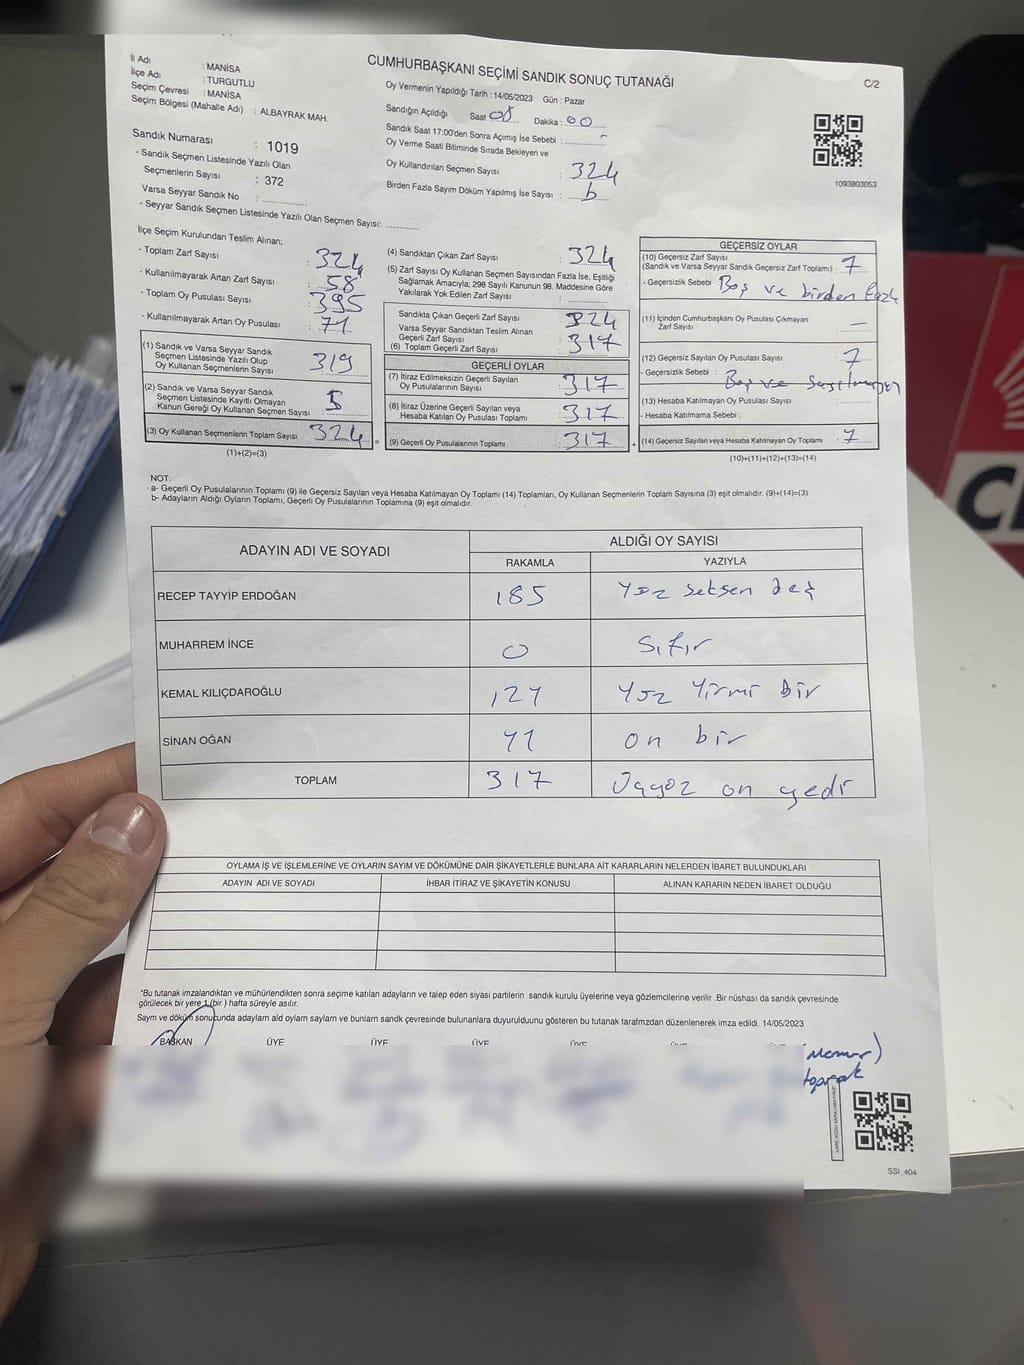 CUMHURBAŞKANI SEÇİMİ SANDIK SONUÇ TUTANAĞI
C/2
İl Adı : MANİSA
İlçe Adı : TURGUTLU
Seçim Çevresi : MANİSA
Seçim Bölgesi (Mahalle Adı) : ALBAYRAK MAH.
Sandık Numarası : 1019
- Sandık Seçmen Listesinde Yazılı Olan
Seçmenlerin Sayısı : 372
Varsa Seyyar Sandık No :
- Seyyar Sandık Seçmen Listesinde Yazılı Olan Seçmen Sayısı:
Oy Vermenin Yapıldığı Tarih : 14/05/2023 Gün : Pazar
Sandığın Açıldığı Saat 08 Dakika : 00
Sandık Saat 17:00'den Sonra Açımış İse Sebebi : -
Oy Verme Saati Bitiminde Sırada Bekleyen ve
Oy Kullandırılan Seçmen Sayısı : 324
Birden Fazla Sayım Döküm Yapılmış İse Sayısı :
1093803053
İlçe Seçim Kurulundan Teslim Alınan;
- Toplam Zarf Sayısı : 324
- Kullanılmayarak Artan Zarf Sayısı : 58
- Toplam Oy Pusulası Sayısı : 395
- Kullanılmayarak Artan Oy Pusulası : 71
(1) Sandık ve Varsa Seyyar Sandık
Seçmen Listesinde Yazılı Olup
Oy Kullanan Seçmenlerin Sayısı : 319
(2) Sandık ve Varsa Seyyar Sandık
Seçmen Listesinde Kayıtlı Olmayan
Kanun Gereği Oy Kullanan Seçmen Sayısı : 5
(3) Oy Kullanan Seçmenlerin Toplam Sayısı 324
(1)+(2)=(3)
(4) Sandıktan Çıkan Zarf Sayısı : 324
(5) Zarf Sayısı Oy Kullanan Seçmen Sayısından Fazla İse, Eşitliği
Sağlamak Amacıyla; 298 Sayılı Kanunun 98. Maddesine Göre
Yakılarak Yok Edilen Zarf Sayısı :
Sandıkta Çıkan Geçerli Zarf Sayısı : 324
Varsa Seyyar Sandıktan Teslim Alınan
Geçerli Zarf Sayısı
(6) Toplam Geçerli Zarf Sayısı : 317
GEÇERLİ OYLAR
(7) İtiraz Edilmeksizin Geçerli Sayılan
Oy Pusulalarının Sayısı : 317
(8) İtiraz Üzerine Geçerli Sayılan veya
Hesaba Katılan Oy Pusulası Toplamı : 317
(9) Geçerli Oy Pusulalarının Toplamı : 317
GEÇERSİZ OYLAR
(10) Geçersiz Zarf Sayısı
(Sandık ve Varsa Seyyar Sandık Geçersiz Zarf Toplamı) : 7
- Geçersizlik Sebebi : Boş ve birden fazla
(11) İçinden Cumhurbaşkanı Oy Pusulası Çıkmayan
Zarf Sayısı : —
(12) Geçersiz Sayılan Oy Pusulası Sayısı : 7
- Geçersizlik Sebebi : Boş ve
(13) Hesaba Katılmayan Oy Pusulası Sayısı :
- Hesaba Katılmama Sebebi :
(14) Geçersiz Sayılan veya Hesaba Katılmayan Oy Toplamı : 7
(10)+(11)+(12)+(13)=(14)
NOT:
a- Geçerli Oy Pusulalarının Toplamı (9) ile Geçersiz Sayılan veya Hesaba Katılmayan Oy Toplamı (14) Toplamları, Oy Kullanan Seçmenlerin Toplam Sayısına (3) eşit olmalıdır. (9)+(14)=(3)
b- Adayların Aldığı Oyların Toplamı, Geçerli Oy Pusulalarının Toplamına (9) eşit olmalıdır.
ADAYIN ADI VE SOYADI
ALDIĞI OY SAYISI
RAKAMLA YAZIYLA
RECEP TAYYİP ERDOĞAN 185 Yüz seksen beş
MUHARREM İNCE 0 Sıfır
KEMAL KILIÇDAROĞLU 121 Yüz Yirmi bir
SİNAN OĞAN 11 on bir
TOPLAM 317 Üçyüz on yedi
OYLAMA İŞ VE İŞLEMLERİNE VE OYLARIN SAYIM VE DÖKÜMÜNE DAİR ŞİKAYETLERLE BUNLARA AİT KARARLARIN NELERDEN İBARET BULUNDUKLARI
ADAYIN ADI VE SOYADI İHBAR İTİRAZ VE ŞİKAYETİN KONUSU ALINAN KARARIN NEDEN İBARET OLDUĞU
*Bu tutanak imzalandıktan ve mühürlendikten sonra seçime katılan adayların ve talep eden siyasi partilerin sandık kurulu üyelerine veya gözlemcilerine verilir .Bir nüshası da sandık çevresinde
görülecek bir yere 1 (bir ) hafta süreyle asılır.
Sayım ve döküm sonuçunda adayların ald oyların sayların ve bunların sandk çevresinde bulunanlara duyurulduunu gösteren bu tutanak tarafmzdan düzenlenerek imza edildi. 14/05/2023
BAŞKAN ÜYE ÜYE ÜYE ÜYE
(Memur)
toprak
SSI_404